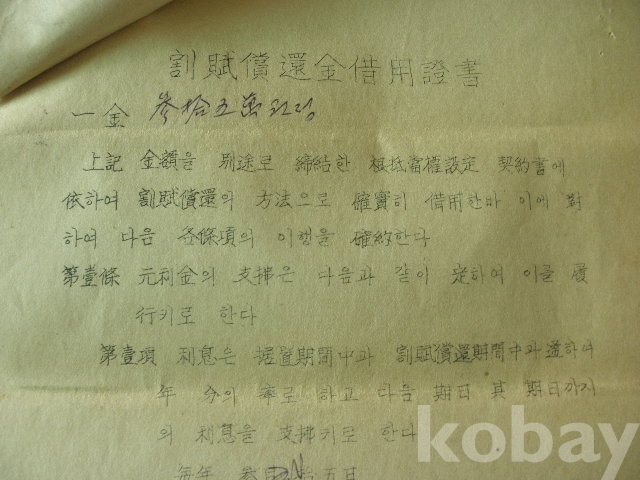 割賦償還金借用證書
一金 參拾五萬원정
上記 金額을 別途로 締結한 根抵當權設定 契約書에
依하여 割賦償還의 方法으로 確實히 借用한바 이에 對
하여 다음 各條項의 이행을 確約한다
第壹條 元利金의 支拂은 다음과 같이 定하여 이를 履
行키로 한다
第壹項 利息은 据置期間中과 割賦償還期間中과 通하여
年 分의 率로 하고 다음 期日 其 期日까지
의 利息을 支拂키로 한다
每年 五日
kobay